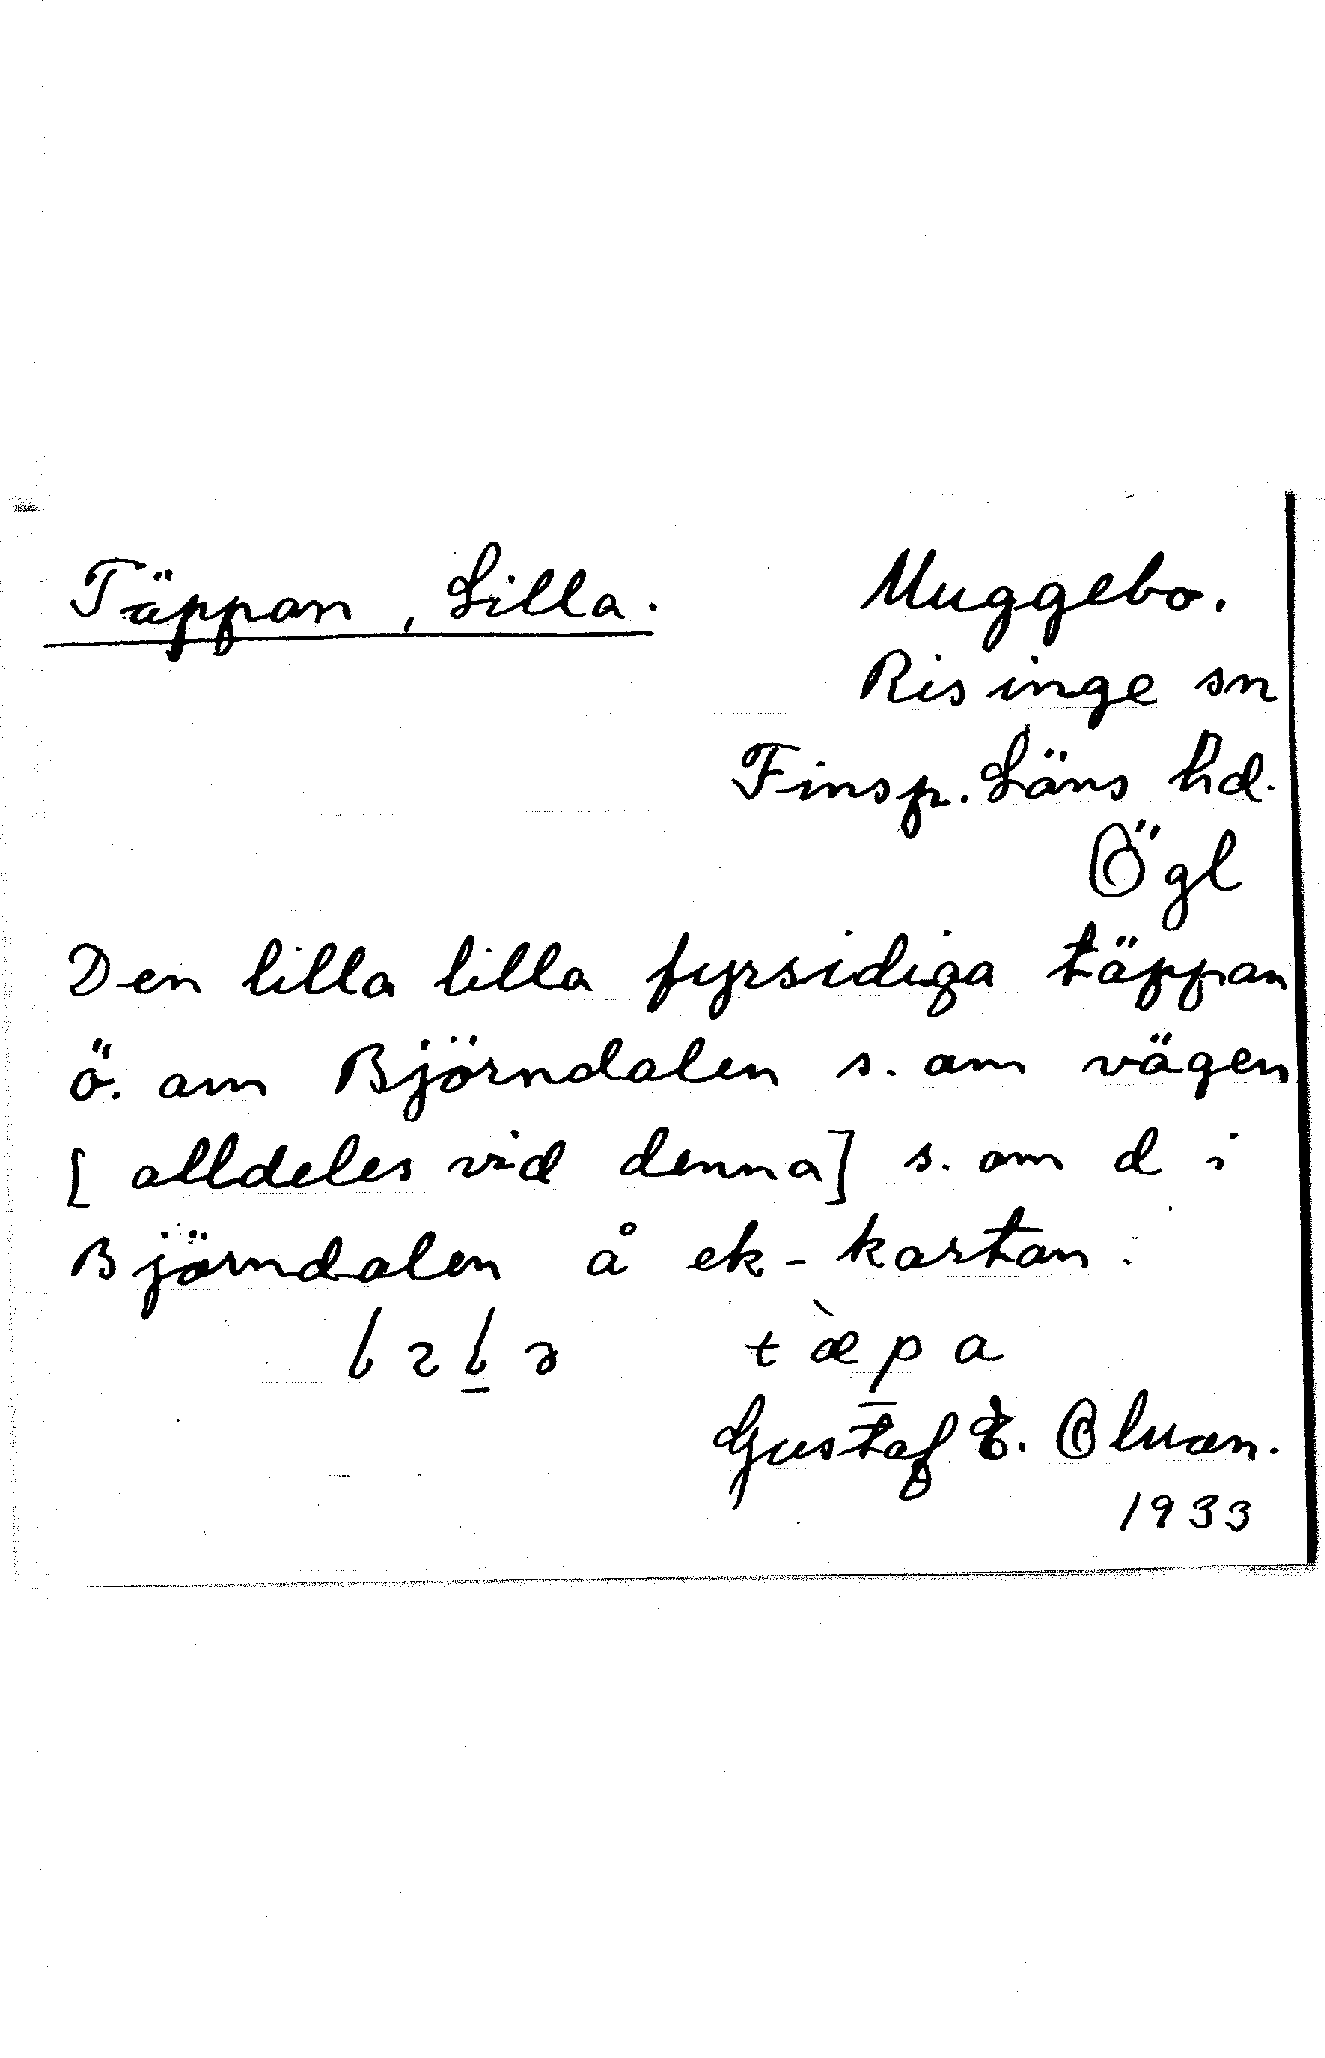 Täppan, Lilla.
Muggebo.
Risinge sn
Finsp. Läns hd.
Ögl
Den lilla lilla fyrsidiga täppan
ö. om Björndalen s. om vägen
[alldeles vid denna] s. om d i
Björndalen å ek-kartan.
tæ̀p̲a
Gustaf E.
1933